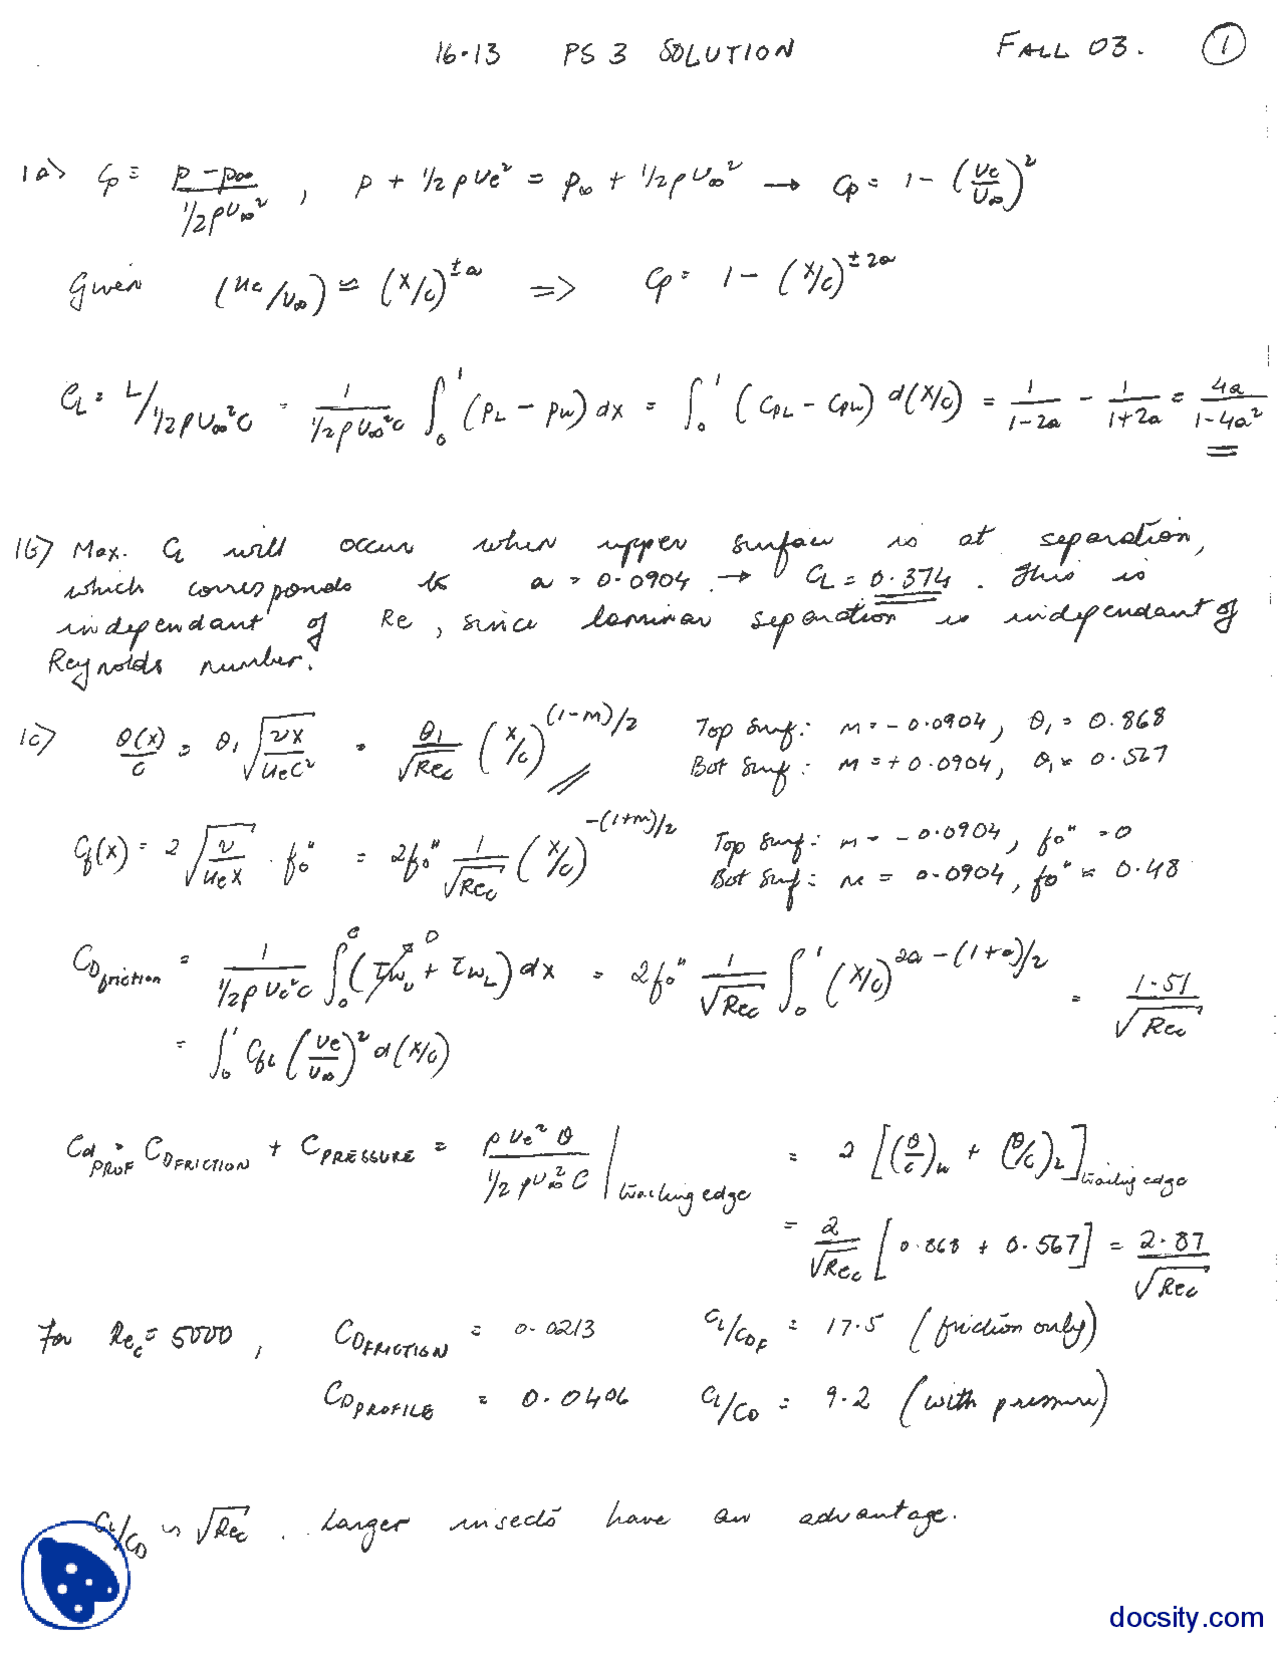 16.13 PS 3 SOLUTION FALL 03. ①
1a> Cp ≡ (p - p∞)/(1/2 ρU∞²), p + 1/2 ρUe² = p∞ + 1/2 ρU∞² → Cp = 1 - (Ue/U∞)²
Given (ue/U∞) = (x/c)^±a => Cp = 1 - (x/c)^±2a
CL = L/(1/2 ρU∞²c) = 1/(1/2 ρU∞²c) ∫₀¹ (pL - pu) dx = ∫₀¹ (CpL - Cpu) d(x/c) = 1/(1-2a) - 1/(1+2a) = 4a/(1-4a²)
1b> Max. CL will occur when upper surface is at separation,
which corresponds to a = 0.0904 → CL = 0.374. This is
independant of Re, since laminar separation is independant of
Reynolds number.
1c> θ(x)/c = θ₁ √(νx/(ueC²)) = θ₁/√Rec (x/c)^(1-m)/2 Top Surf: m = -0.0904, θ₁ = 0.868
Bot Surf: m = +0.0904, θ₁ = 0.567
Cf(x) = 2 √(ν/(uex)) · fo" = 2fo" 1/√Rec (x/c)^-(1+m)/2 Top Surf: m = -0.0904, fo" = 0
Bot Surf: m = 0.0904, fo" = 0.48
CDfriction = 1/(1/2 ρUe²c) ∫₀ᶜ (τwu→0 + τwL) dx = 2fo" 1/√Rec ∫₀¹ (x/c)^2a-(1+a)/2 = 1.51/√Rec
= ∫₀¹ CfL (Ue/U∞)² d(x/c)
CdPROF = CDFRICTION + CPRESSURE = ρUe²θ/(1/2 ρU∞²C) |trailing edge = 2 [(θ/c)u + (θ/c)L]trailing edge
= 2/√Rec [0.868 + 0.567] = 2.87/√Rec
For Rec = 5000, CDFRICTION = 0.0213 CL/CDF = 17.5 (friction only)
CDPROFILE = 0.0406 CL/CD = 9.2 (with pressure)
CL/CD ~ √Rec. Larger insects have an advantage.
docsity.com